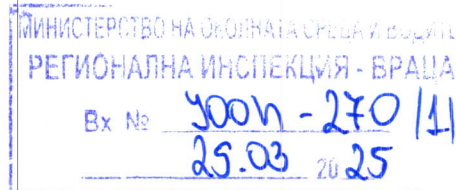 МИНИСТЕРСТВО НА ОКОЛНАТА СРЕДА И ВОДИТЕ
РЕГИОНАЛНА ИНСПЕКЦИЯ - ВРАЦА
Вх № УООП - 270 /1/
25.03 2025